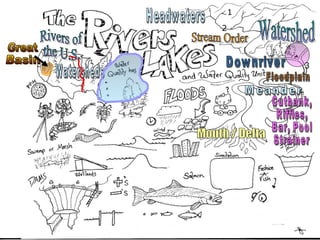 Headwaters
The
Rivers
Lakes
and Water Quality Unit
Rivers of
the U.S.
Great
Basin
Watersheds
Water
Quality
Stream Order
1
2
Watershed
Downriver
Floodplain
Meander
Cutbank,
Riffles,
Bar, Pool
Strainer
FLOODS
Mouth / Delta
Swamp or Marsh
Wetlands
DAMS
+'s
-'s
Salmon
Simulation
Fiction
Fish